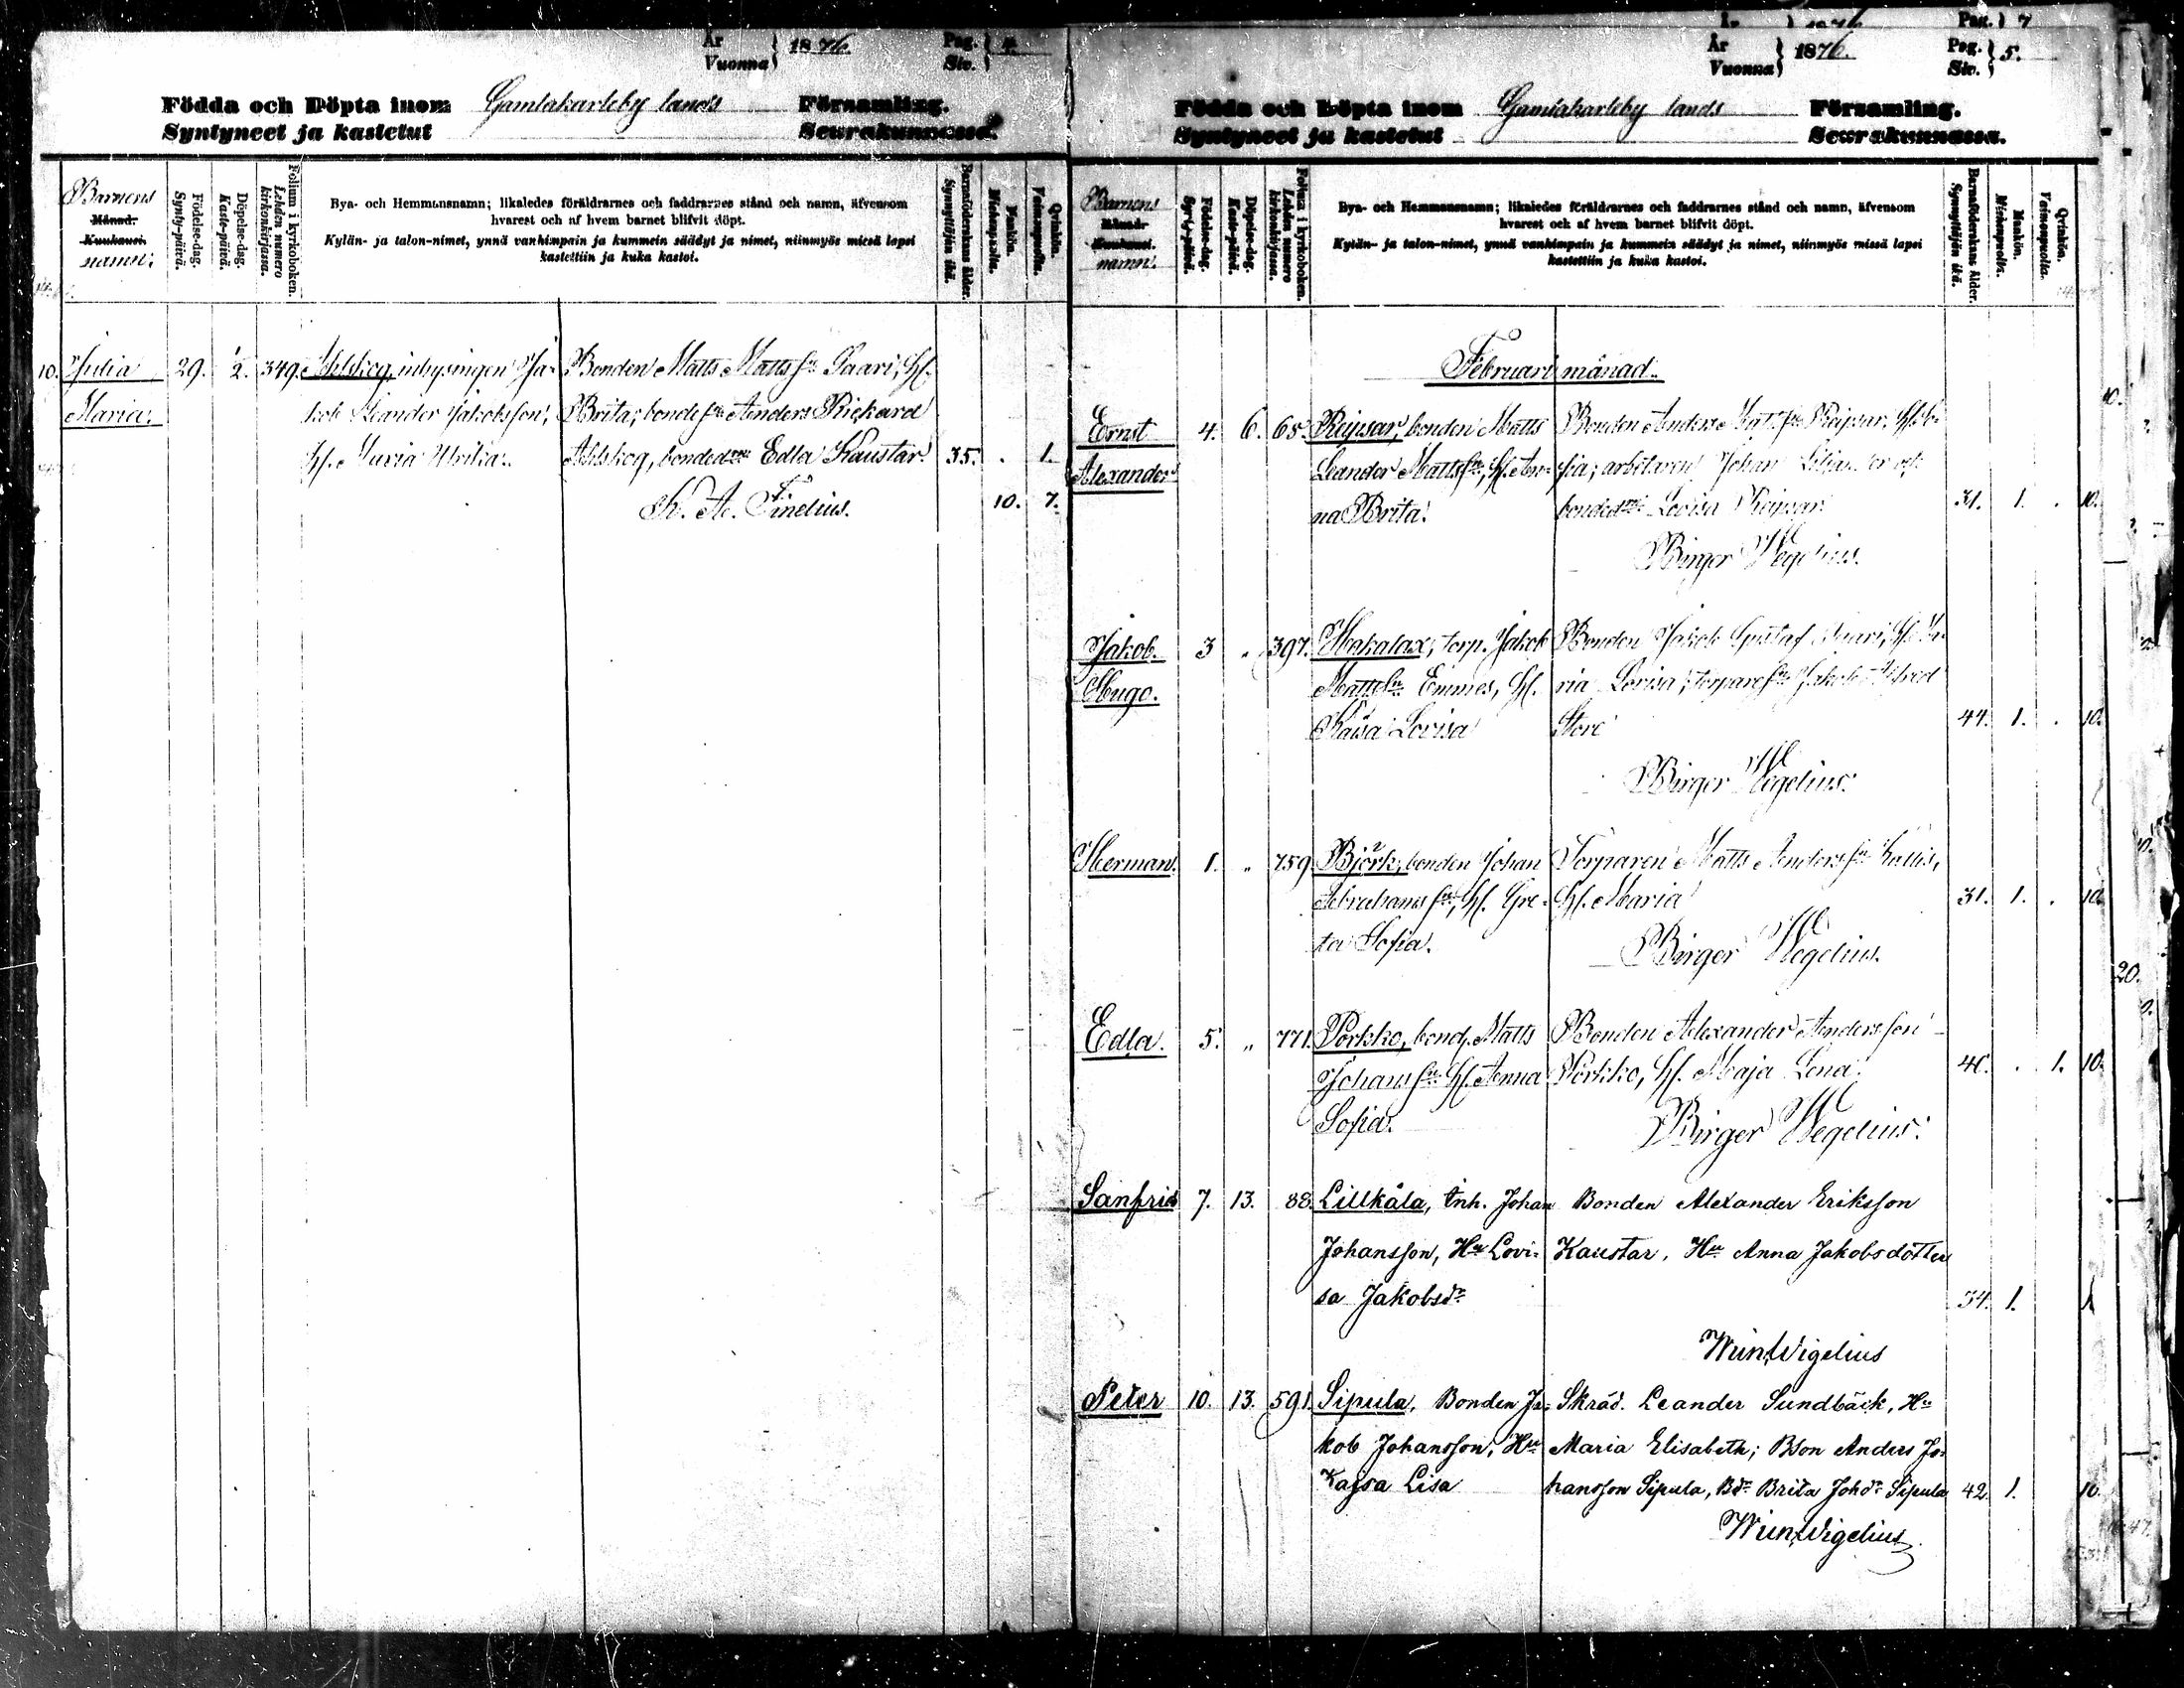 År Vuonna } 1876. Pag. Siv. } 4.
Födda och Döpta inom Gamlakarleby lands Församling.
Syntyneet ja kastetut Seurakunnassa.
Barnens
Månad.
Kuukausi.
namn.
Födelse-dag.
Synty-päivä.
Döpelse-dag.
Kaste-päivä.
Folium i kyrkoboken.
Lehden numero kirkonkirjassa.
Bya- och Hemmansnamn; likaledes föräldrarnes och faddrarnes stånd och namn, äfvensom
hvarest och af hvem barnet blifvit döpt.
Kylän- ja talon-nimet, ynnä vanhimpain ja kummein säädyt ja nimet, niinmyös missä lapsi
kastettiin ja kuka kastoi.
Barnaföderskans ålder.
Synnyttäjän ikä.
Mankön.
Miehenpuolta.
Qvinkön.
Vaimonpuolta.
10. Julia 29. 1/2. 349. Ahlskog, inhysingen Ja- Bonden Matts Matts sn Saari, H.
Maria. kob Leander Jakobsson, Brita; bonde sn Anders Rickard
H. Maria Ulrika. Ahlskog, bondedtr Edla Kaustar. 35. . 1.
K. A. Finelius. 10. 7.
År Vuonna } 1876. Pag. Siv. } 5.
Födda och Döpta inom Gamlakarleby lands Församling.
Syntyneet ja kastetut Seurakunnassa.
Barnens
Månad.
Kuukausi.
namn.
Födelse-dag.
Synty-päivä.
Döpelse-dag.
Kaste-päivä.
Folium i kyrkoboken.
Lehden numero kirkonkirjassa.
Bya- och Hemmansnamn; likaledes föräldrarnes och faddrarnes stånd och namn, äfvensom
hvarest och af hvem barnet blifvit döpt.
Kylän- ja talon-nimet, ynnä vanhimpain ja kummein säädyt ja nimet, niinmyös missä lapsi
kastettiin ja kuka kastoi.
Barnaföderskans ålder.
Synnyttäjän ikä.
Mankön.
Miehenpuolta.
Qvinkön.
Vaimonpuolta.
Februari månad.
Ernst 4. 6. 68. Ripsar, bonden Matts Bonden Anders Mat. sn Ripsar, H. So-
Alexander Leander Matts sn, H. An- fia; arbetaren Johan och
na Brita. bondedtr Lovisa Ripsar. 31. 1. . 10.
Birger Wegelius.
Jakob 3 " 397. Hakalax, torp. Jakob Bonden Jakob Gustaf H. Ma-
Hugo. Matts sn Emmes, H. ria Lovisa; torpare sn Jakob Alfred
Kaisa Lovisa Store 44. 1. . 10.
Birger Wegelius.
Herman. 1. " 759. Björk, bonden Johan Torparen Matts Anders sn Kallis,
Abrahams sn, H. Gre- H. Maria 31. 1. . 10.
ta Sofia.
Birger Wegelius.
Edla. 5. " 771. Porkko, bond. Matts Bonden Alexander Andersson
Johans sn H. Anna Porkko, H. Maja Lena. 40. . 1. 10.
Sofia.
Birger Wegelius.
Sanfrid 7. 13. 88. Lillkåla, Inh. Johan Bonden Alexander Eriksson
Johansson, Hu Lovi- Kaustar, Hu Anna Jakobsdotter
sa Jakobsdr 34. 1.
Wegelius
Peter 10. 13. 591. Sipula, Bonden Ja- Skräd. Leander Sundbäck, Hu
kob Johansson, Hu Maria Elisabeth; Bson Anders Jo-
Kajsa Lisa hansson Sipula, Bdr Brita Johdr Sipula 42. 1. 10.
Wegelius